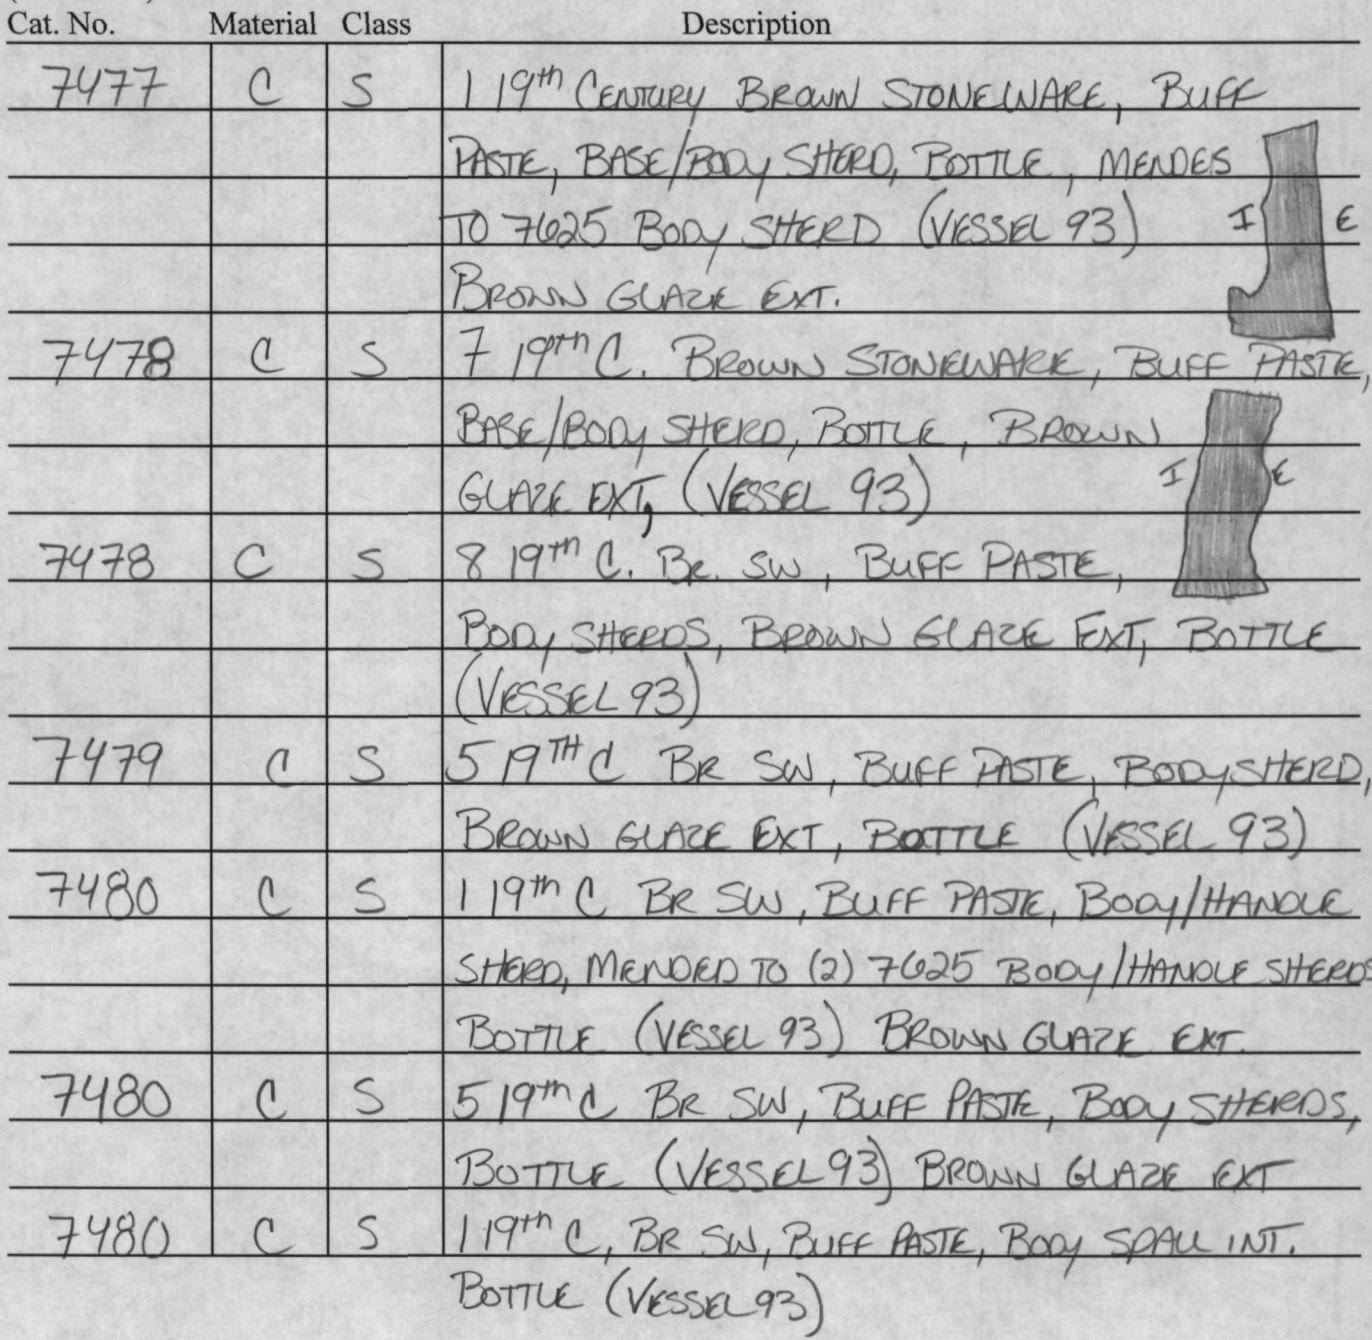 Cat. No. Material Class Description
7477 C S 1 19th CENTURY BROWN STONEWARE, BUFF
PASTE, BASE/BODY SHERD, BOTTLE, MENDES
TO 7625 BODY SHERD (VESSEL 93) I E
BROWN GLAZE EXT.
7478 C S 7 19th C. BROWN STONEWARE, BUFF PASTE,
BASE/BODY SHERD, BOTTLE, BROWN
GLAZE EXT, (VESSEL 93) I E
7478 C S 8 19th C. BR. SW, BUFF PASTE,
BODY SHERDS, BROWN GLAZE EXT, BOTTLE
(VESSEL 93)
7479 C S 5 19TH C BR SW, BUFF PASTE, BODY SHERD,
BROWN GLAZE EXT, BOTTLE (VESSEL 93)
7480 C S 1 19th C BR SW, BUFF PASTE, BODY/HANDLE
SHERD, MENDED TO (2) 7625 BODY/HANDLE SHERDS
BOTTLE (VESSEL 93) BROWN GLAZE EXT.
7480 C S 5 19th C BR SW, BUFF PASTE, BODY SHERDS,
BOTTLE (VESSEL 93) BROWN GLAZE EXT
7480 C S 1 19th C, BR SW, BUFF PASTE, BODY SPALL INT.
BOTTLE (VESSEL 93)